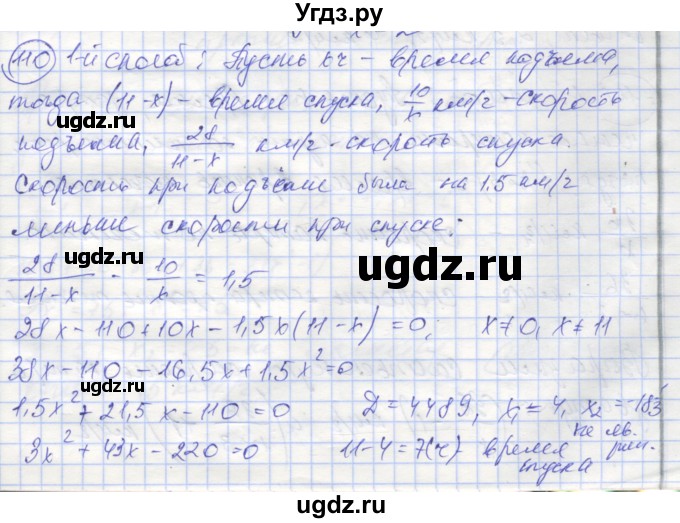 Угдз.ру
110 1-й способ: Пусть x ч – время подъема,
тогда (11-x) – время спуска, 10/x км/ч – скорость
подъема, 28/11-x км/ч – скорость спуска.
Скорость при подъёме была на 1.5 км/ч
меньше скорости при спуске:
ugdz.ru ugdz.ru
28/11-x - 10/x = 1,5
ugdz.ru
28x - 110 + 10x - 1,5x(11-x) = 0; x≠0, x≠11
38x - 110 - 16,5x + 1,5x² = 0
1,5x² + 21,5x - 110 = 0 D = 4489, x₁ = 4, x₂ = -18⅓
не яв. реш.
3x² + 43x - 220 = 0 11-4 = 7(ч) время
спуска
ugdz.ru ugdz.ru